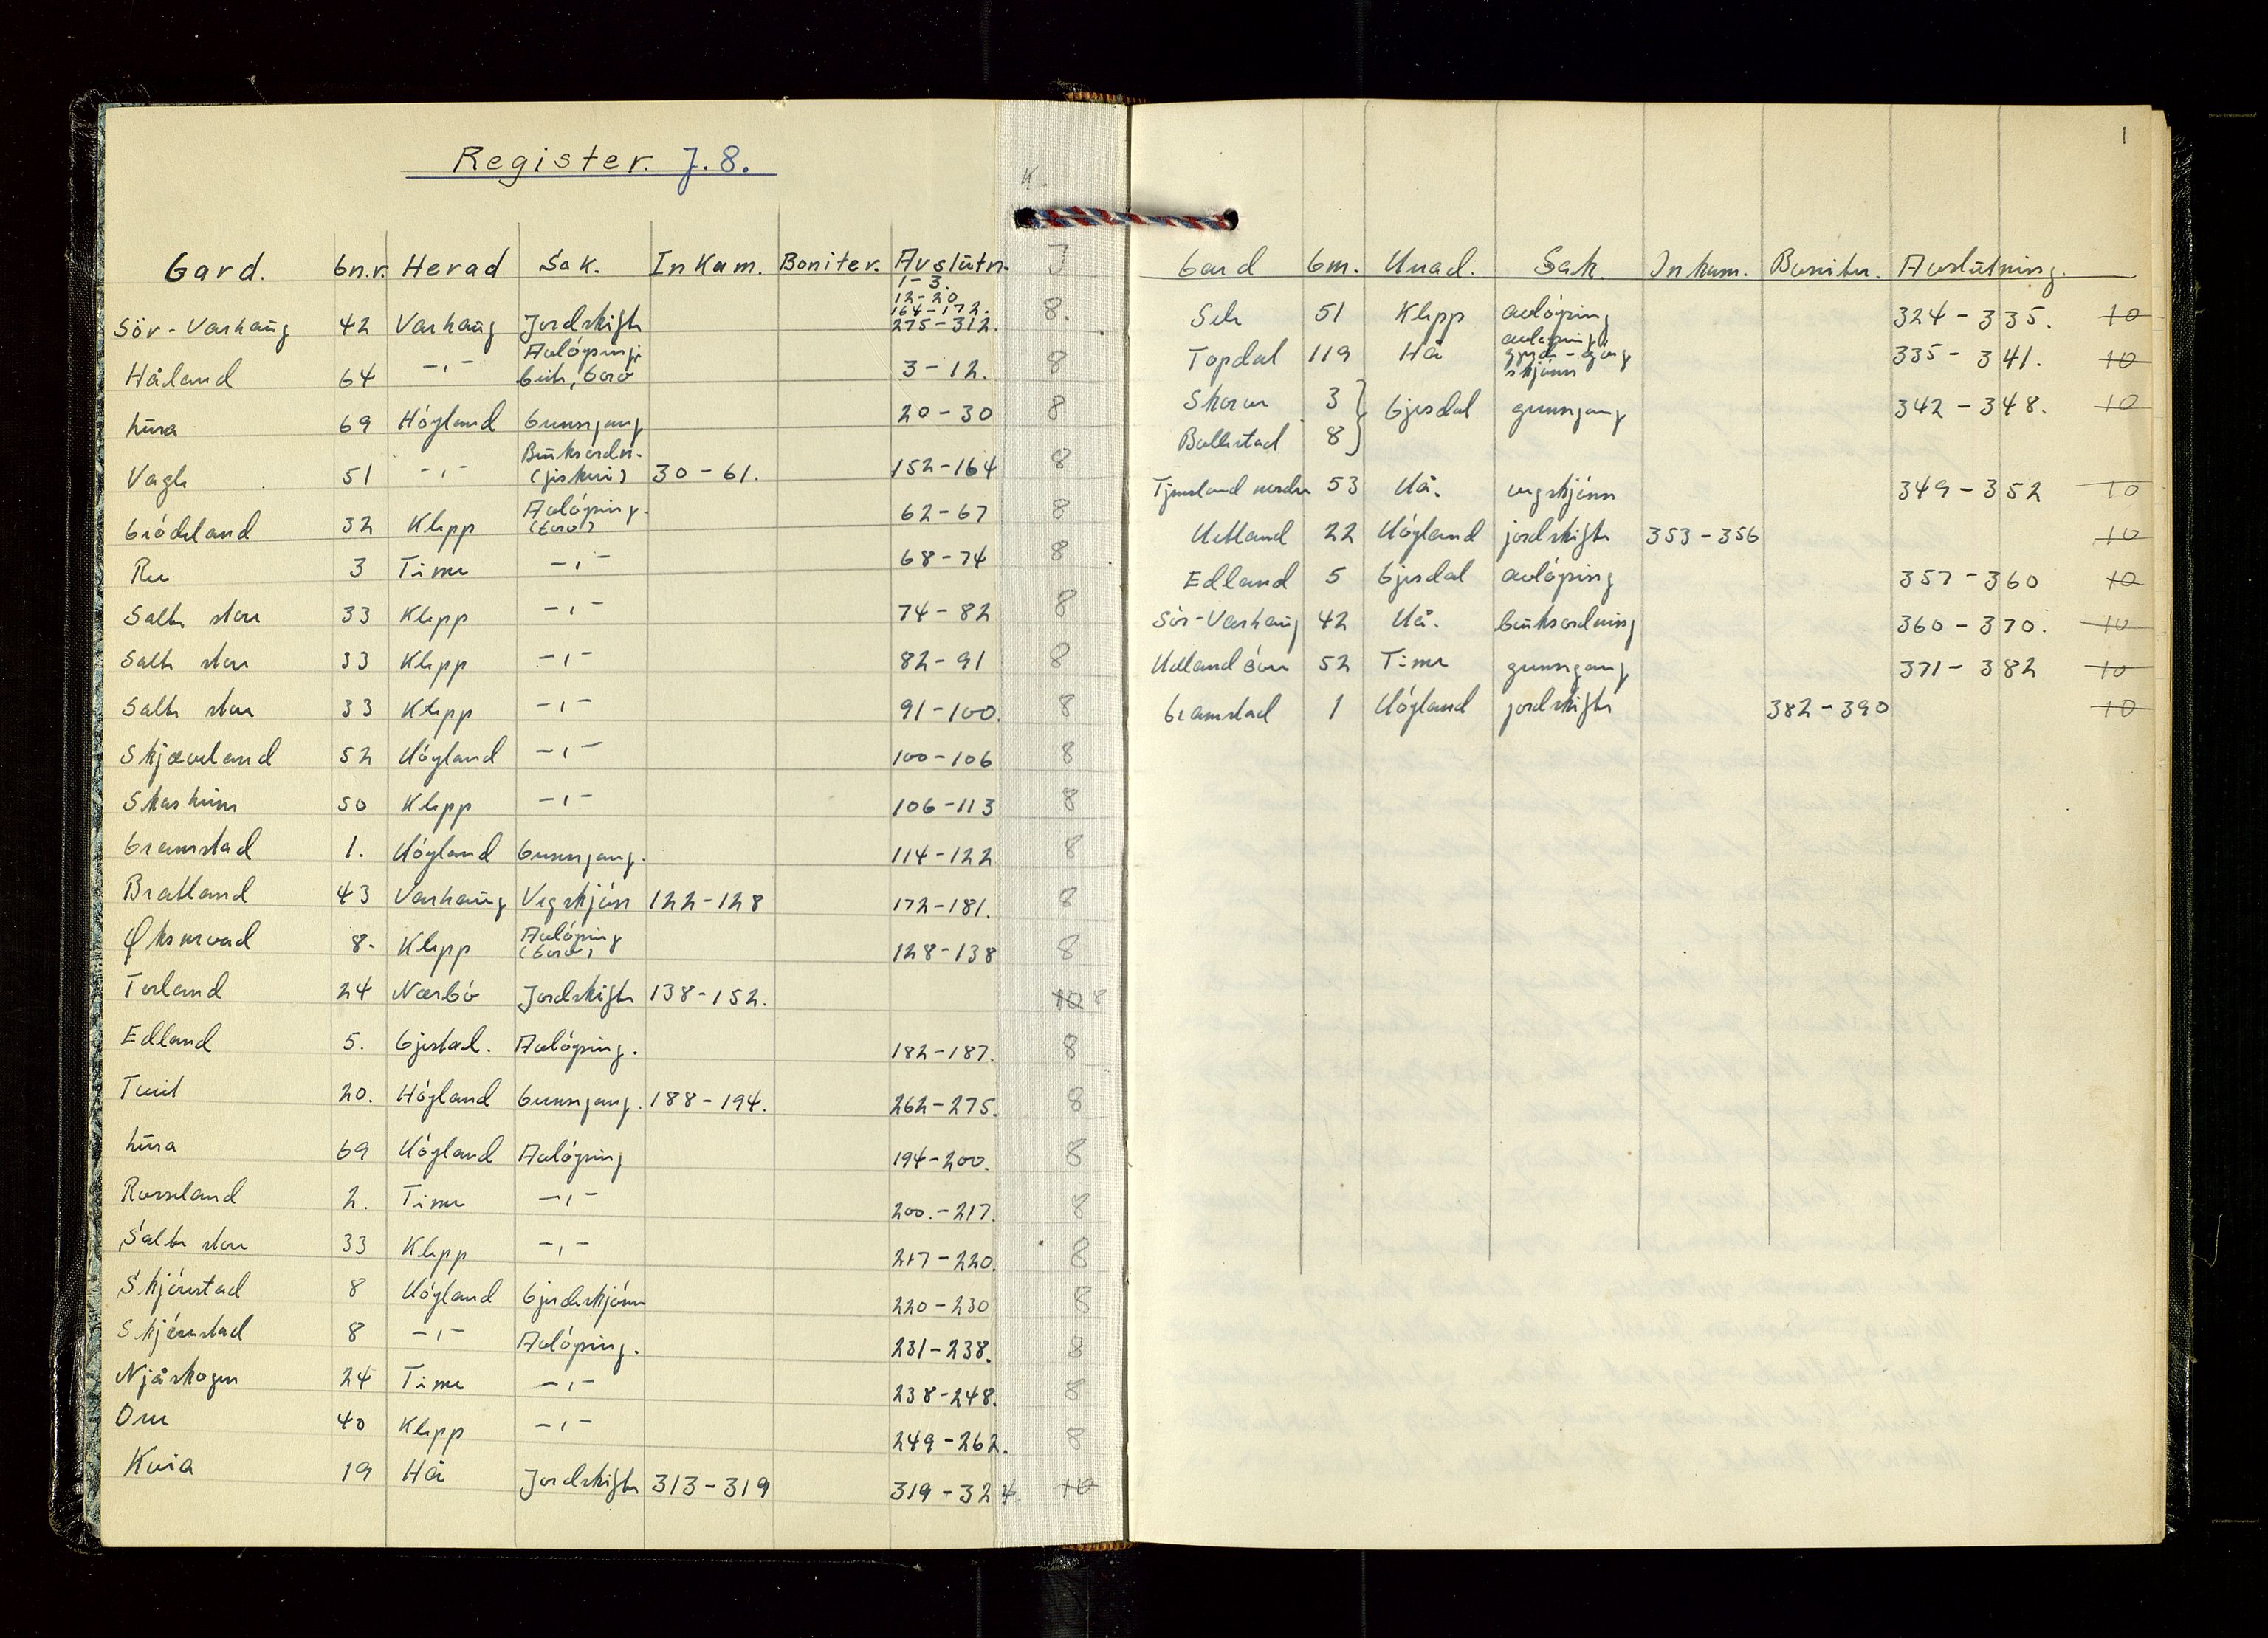 Register. J. 8.
Gard. Gn.r. Herad Sak. Inkam. Boniter. Avslutn. J
1-3.
12-20
164-172.
Sör-Varhaug 42 Varhaug Jordskifte 275-312. 8.
Håland 64 -,- Avlöysing 3-12. 8
beite, torv
Lura 69 Höyland Grensegang 20-30 8
Vagle 51 -,- Bruksordn. (fiskeri) 30-61. 152-164 8
Gródeland 32 Klepp Avlöysing. (torv) 62-67 8
Re 3 Time -,- 68-74 8
Salte store 33 Klepp -,- 74-82 8
Salte store 33 Klepp -,- 82-91 8
Salte store 33 Klepp -,- 91-100. 8
Skjæveland 52 Höyland -,- 100-106 8
Skasheim 50 Klepp -,- 106-113 8
Gramstad 1. Höyland Grensegang. 114-122 8
Bratland 43 Varhaug Vegskjönn 122-128 172-181. 8
Øksnevad 8. Klepp Avlöysing (torv) 128-138 8
Torland 24 Nærbö Jordskifte 138-152. 10 8
Edland 5. Gjesdal. Avlöysing. 182-187. 8
Tveit 20. Höyland Grensegang. 188-194. 262-275. 8
Lura 69 Höyland Avlöysing 194-200. 8
Rosseland 2. Time -,- 200.-217. 8
Salte store 33 Klepp -,- 217-220. 8
Skjörestad 8 Höyland Gjerdeskjönn 220-230 8
Skjörestad 8 -,- Avlöysing. 231-238. 8
Njåskogen 24 Time -,- 238-248. 8
Orre 40 Klepp -,- 249-262. 8
Kvia 19 Hå Jordskifte 313-319 319-324. 10
K.
1
Gard Gnr. Herad. Sak. Inkam. Boniter. Avslutning.
Sele 51 Klepp avlöysing 324-335. 10
Topdal 119 Hå avløysing gjerde-gang skjönn 335-341. 10
Skorve 3 } Gjesdal grensegang 342-348. 10
Bollestad 8 }
Tjemsland nordre 53 Hå. vegskjönn 349-352 10
Hetland 22 Höyland jordskifte 353-356 10
Edland 5 Gjesdal avlöysing 357-360 10
Sör-Varhaug 42 Hå. bruksordning 360-370. 10
Udland Söre 52 Time grensegang 371-382 10
Gramstad 1 Höyland jordskifte 382-390 10